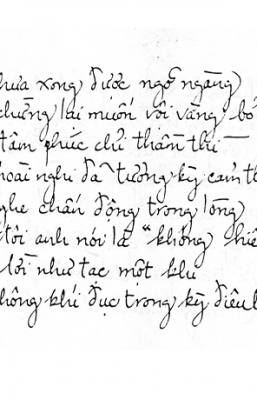 hưa xong được ngỡ ngàng
chừng lại muốn vội vàng bỏ
tâm phúc chỉ thầm thì —
hoài nghi đã tưởng kỳ cảm th
nghe chấn động trong lòng
tôi anh nói là “không hiể
lời như tạc một khu
hông khí đục trong kỳ diệu l